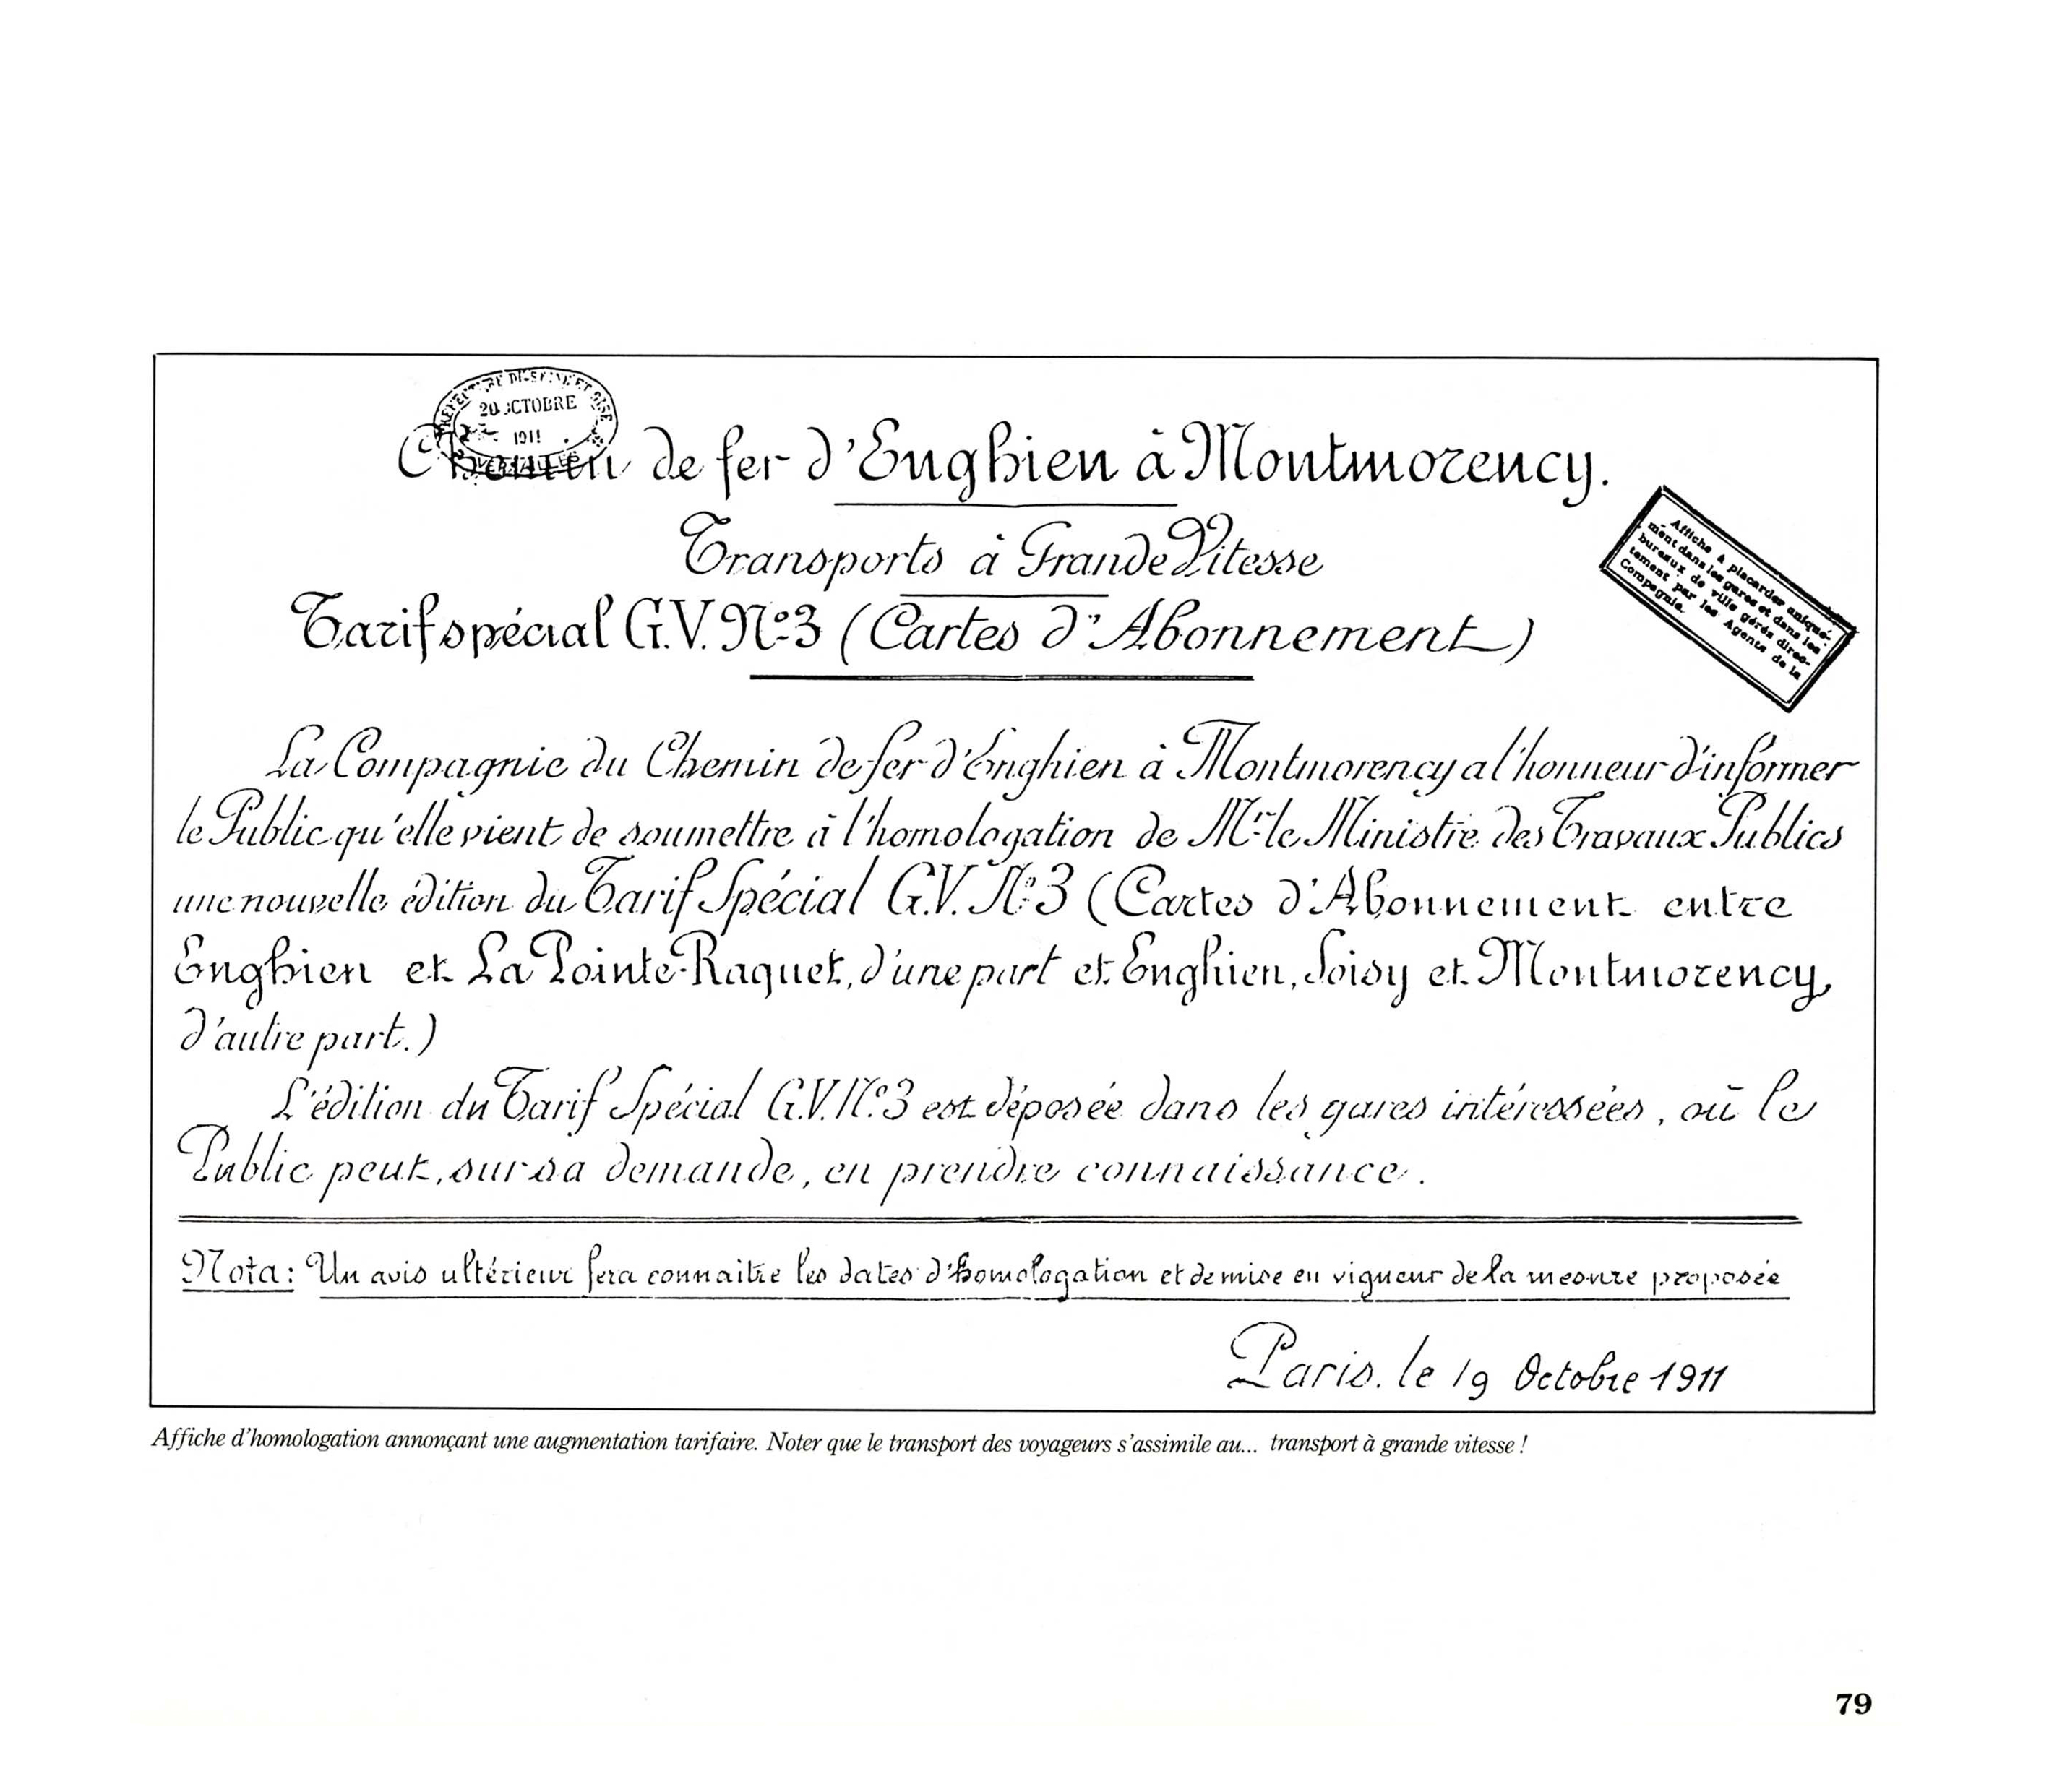 PREFECTURE DE SEINE ET OISE
20 OCTOBRE
1911
VERSAILLES
Chemin de fer d'Enghien à Montmorency.
Transports à Grande Vitesse
Tarif spécial G.V. No 3 (Cartes d'Abonnement)
Affiche à placarder unique-
ment dans les gares et dans les
bureaux de ville gérés direc-
tement par les Agents de la
Compagnie.
La Compagnie du Chemin de fer d'Enghien à Montmorency a l'honneur d'informer
le Public qu'elle vient de soumettre à l'homologation de Mr le Ministre des Travaux Publics
une nouvelle édition du Tarif Spécial G.V. No 3 (Cartes d'Abonnement entre
Enghien et La Pointe-Raquet, d'une part et Enghien, Soisy et Montmorency,
d'autre part.)
L'édition du Tarif Spécial G.V. No 3 est déposée dans les gares intéressées, où le
Public peut, sur sa demande, en prendre connaissance.
Nota: Un avis ultérieur fera connaitre les dates d'homologation et de mise en vigueur de la mesure proposée
Paris. le 19 Octobre 1911
Affiche d'homologation annonçant une augmentation tarifaire. Noter que le transport des voyageurs s'assimile au... transport à grande vitesse !
79